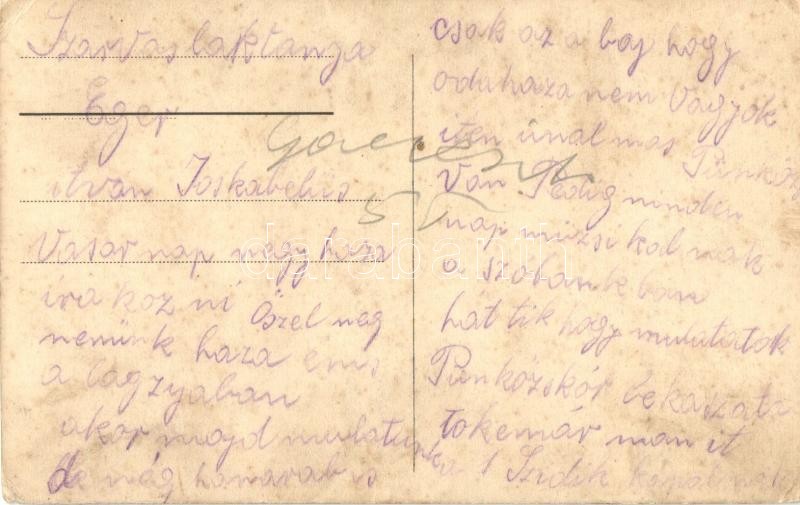 Szarvas laktanya
Eger
itvan Joskabelüs
Vasar nap megy haza
ira koz ni Öszel meg
nemünk haza emis
a lagzyaban
akor majd mulatunk
de még hamarab is
csak az a baj hogy
oduhaza nem Vagyok
iten únal mas Pünkösz
Van Pedig minden
nap muzsi kal nak
a szobank ban
hát tik hogy mulatatok
Pünközskór be kaszata
tokemár man it
a Szidik
darabanth